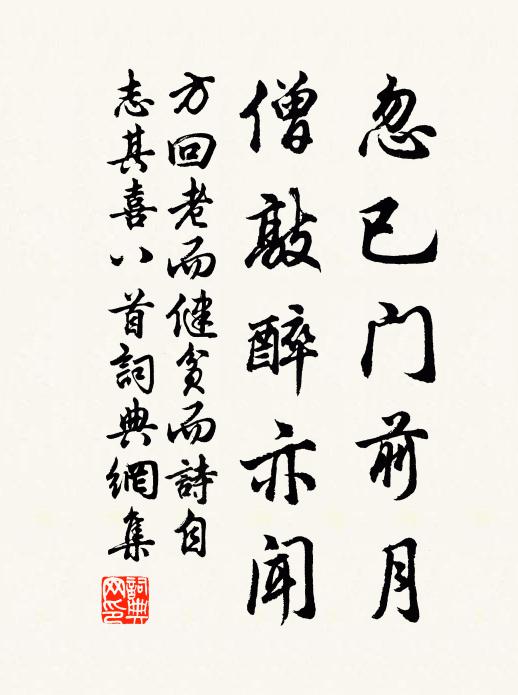 忽已门前月
僧敲醉亦闻
方回老而健贫而詩自
志其喜八首詞典網集
詞典
网印